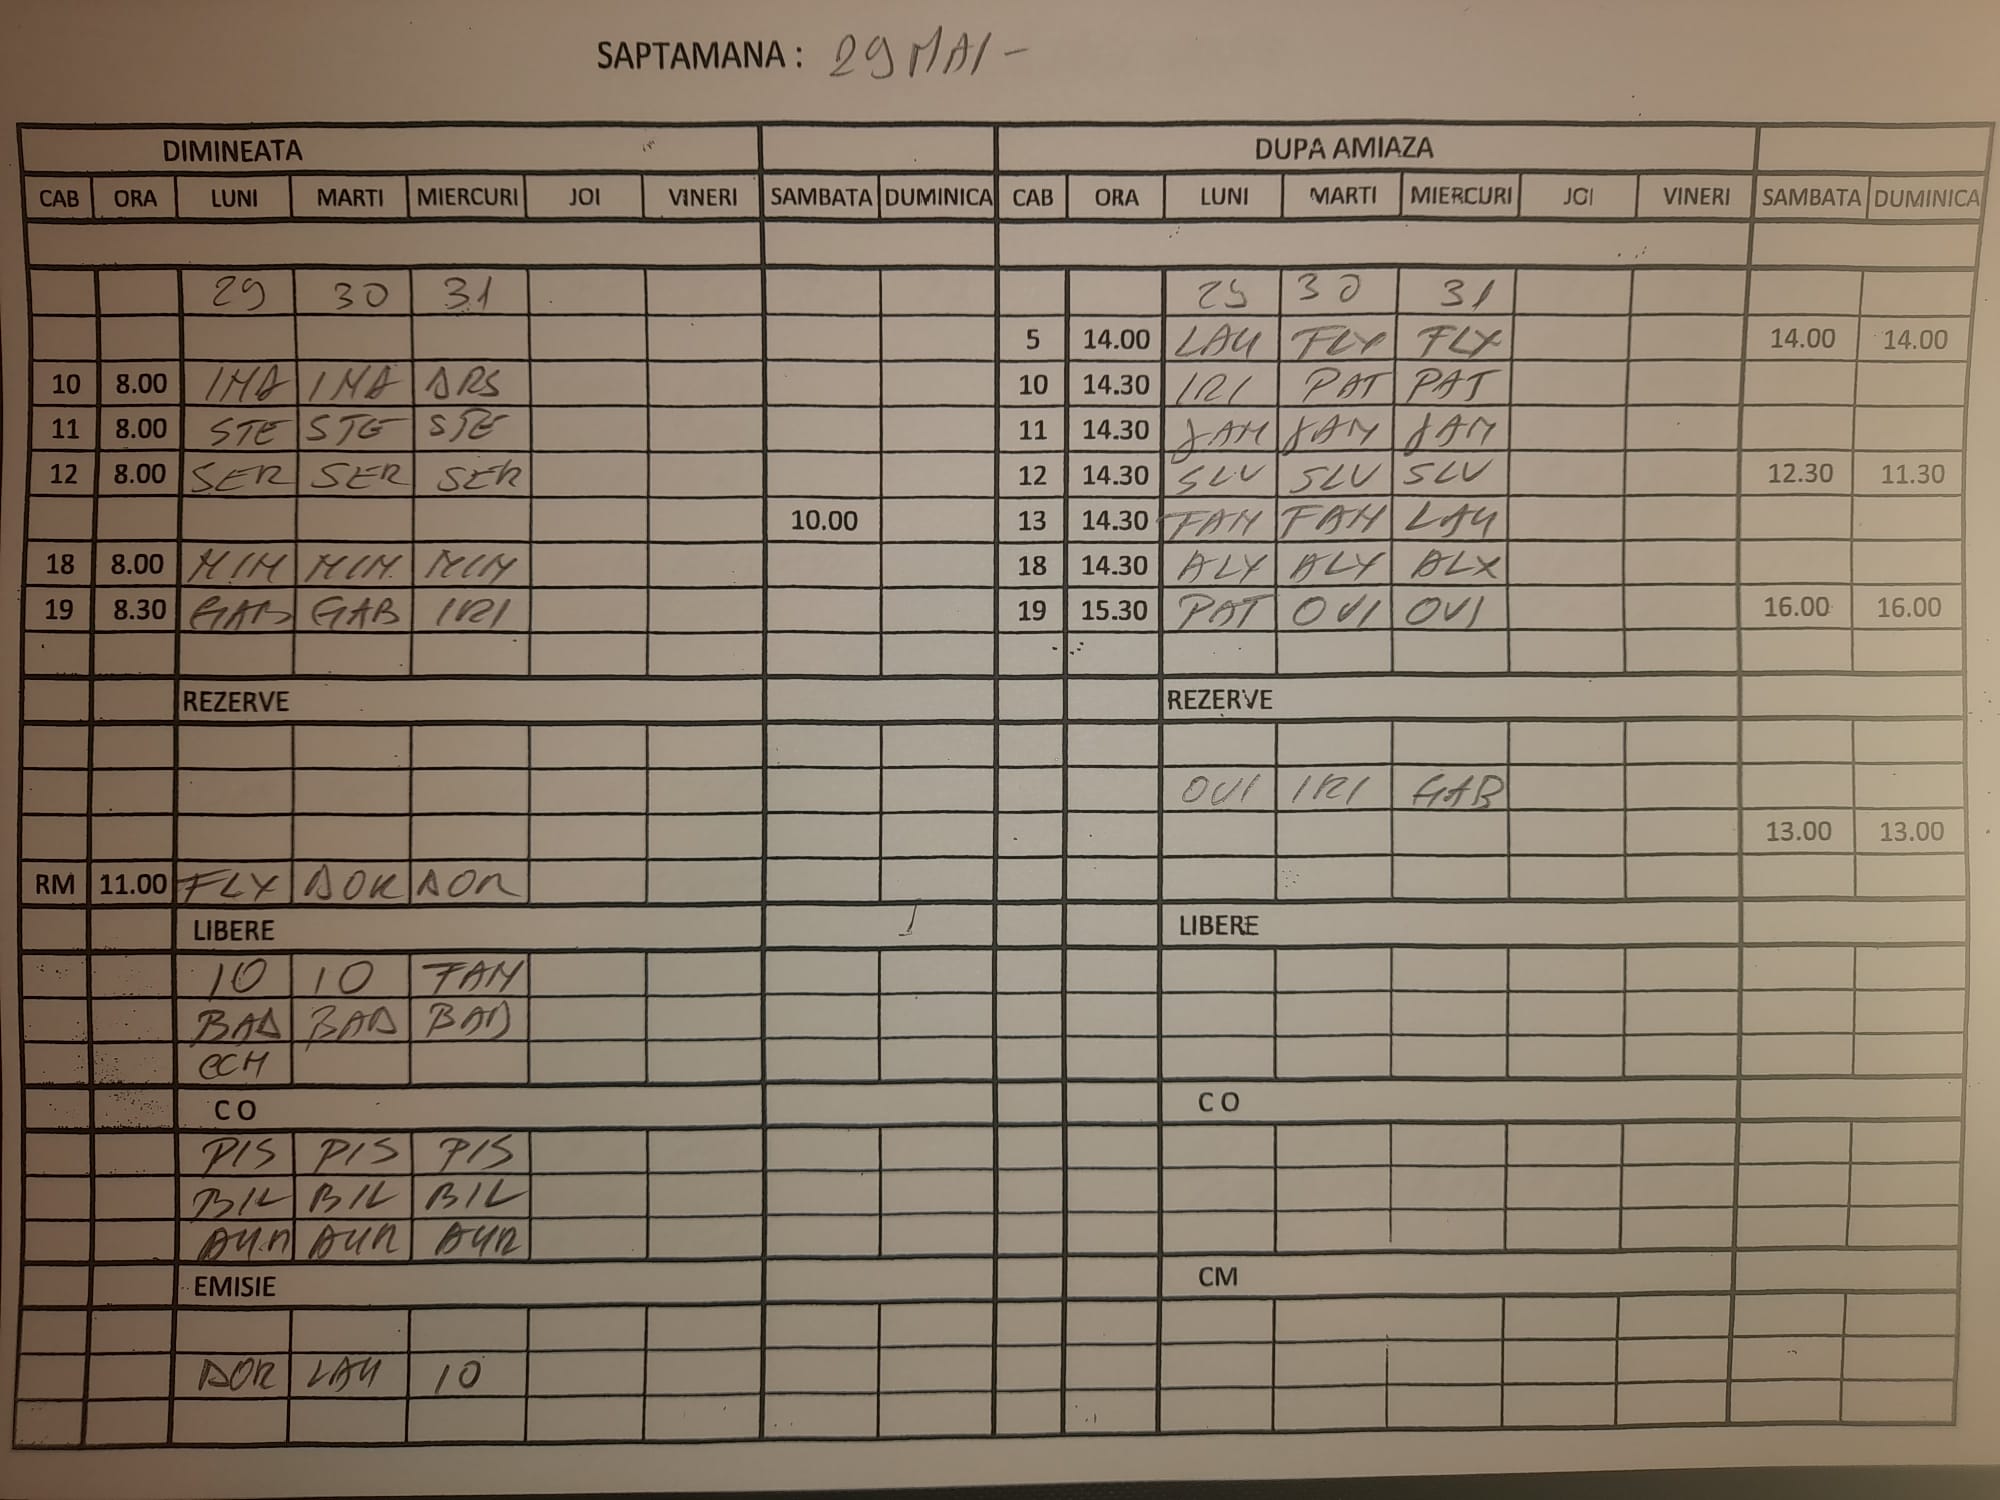 SAPTAMANA : 29 MAI -
DIMINEATA DUPA AMIAZA
CAB ORA LUNI MARTI MIERCURI JOI VINERI SAMBATA DUMINICA CAB ORA LUNI MARTI MIERCURI JOI VINERI SAMBATA DUMINICA
29 30 31 29 30 31
5 14.00 LAU FLX FLX 14.00 14.00
10 8.00 IMA IMA DRS 10 14.30 IRI PAT PAT
11 8.00 STE STE STE 11 14.30 JAM JAM JAM
12 8.00 SER SER SER 12 14.30 SLV SLV SLV 12.30 11.30
10.00 13 14.30 FAM FAM LAU
18 8.00 MIM MIM MIM 18 14.30 ALX ALX ALX
19 8.30 GAB GAB IRI 19 15.30 PAT OVI OVI 16.00 16.00
REZERVE REZERVE
OVI IRI GAB
13.00 13.00
RM 11.00 FLX DOR DOR
LIBERE LIBERE
IO IO FAM
BAD BAD BAD
CO CO
PIS PIS PIS
BIL BIL BIL
AUR AUR AUR
EMISIE CM
DOR LAU IO